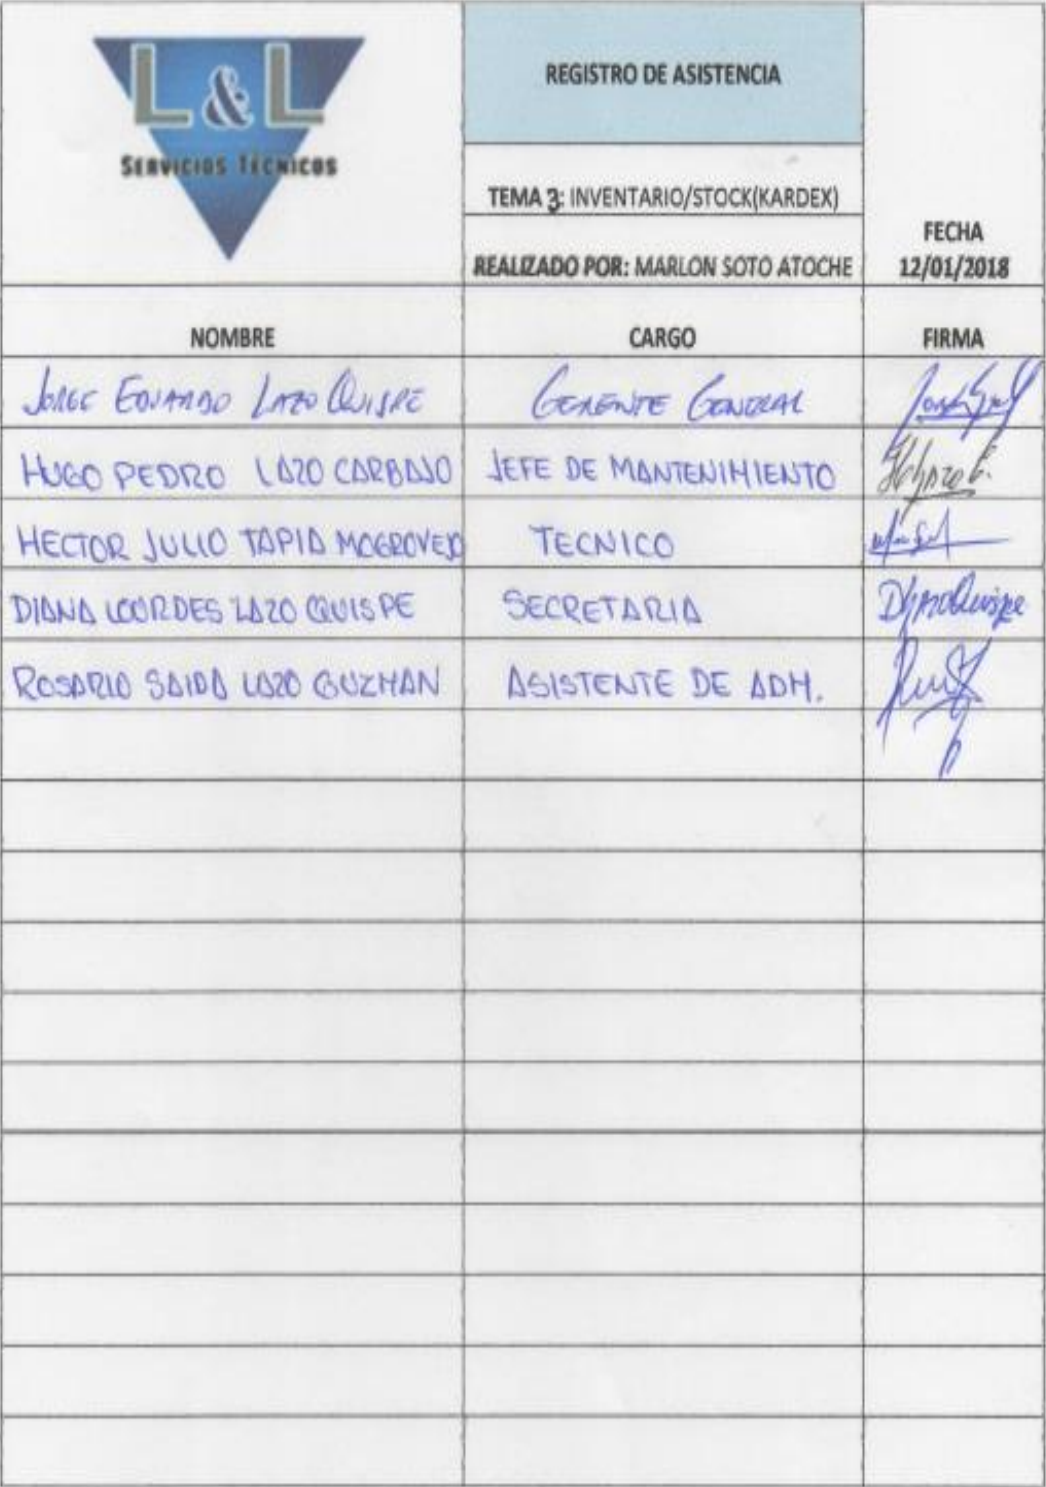 L&L
SERVICIOS TÉCNICOS
REGISTRO DE ASISTENCIA
TEMA 3: INVENTARIO/STOCK(KARDEX)
REALIZADO POR: MARLON SOTO ATOCHE
FECHA
12/01/2018
NOMBRE CARGO FIRMA
JORGE EDUARDO LAZO QUISPE GERENTE GENERAL
HUGO PEDRO LAZO CARBAJO JEFE DE MANTENIMIENTO
HECTOR JULIO TAPIA MOGROVEJO TECNICO
DIANA LOURDES LAZO QUISPE SECRETARIA DLazoQuispe
ROSARIO SAIDA LAZO GUZMAN ASISTENTE DE ADM.